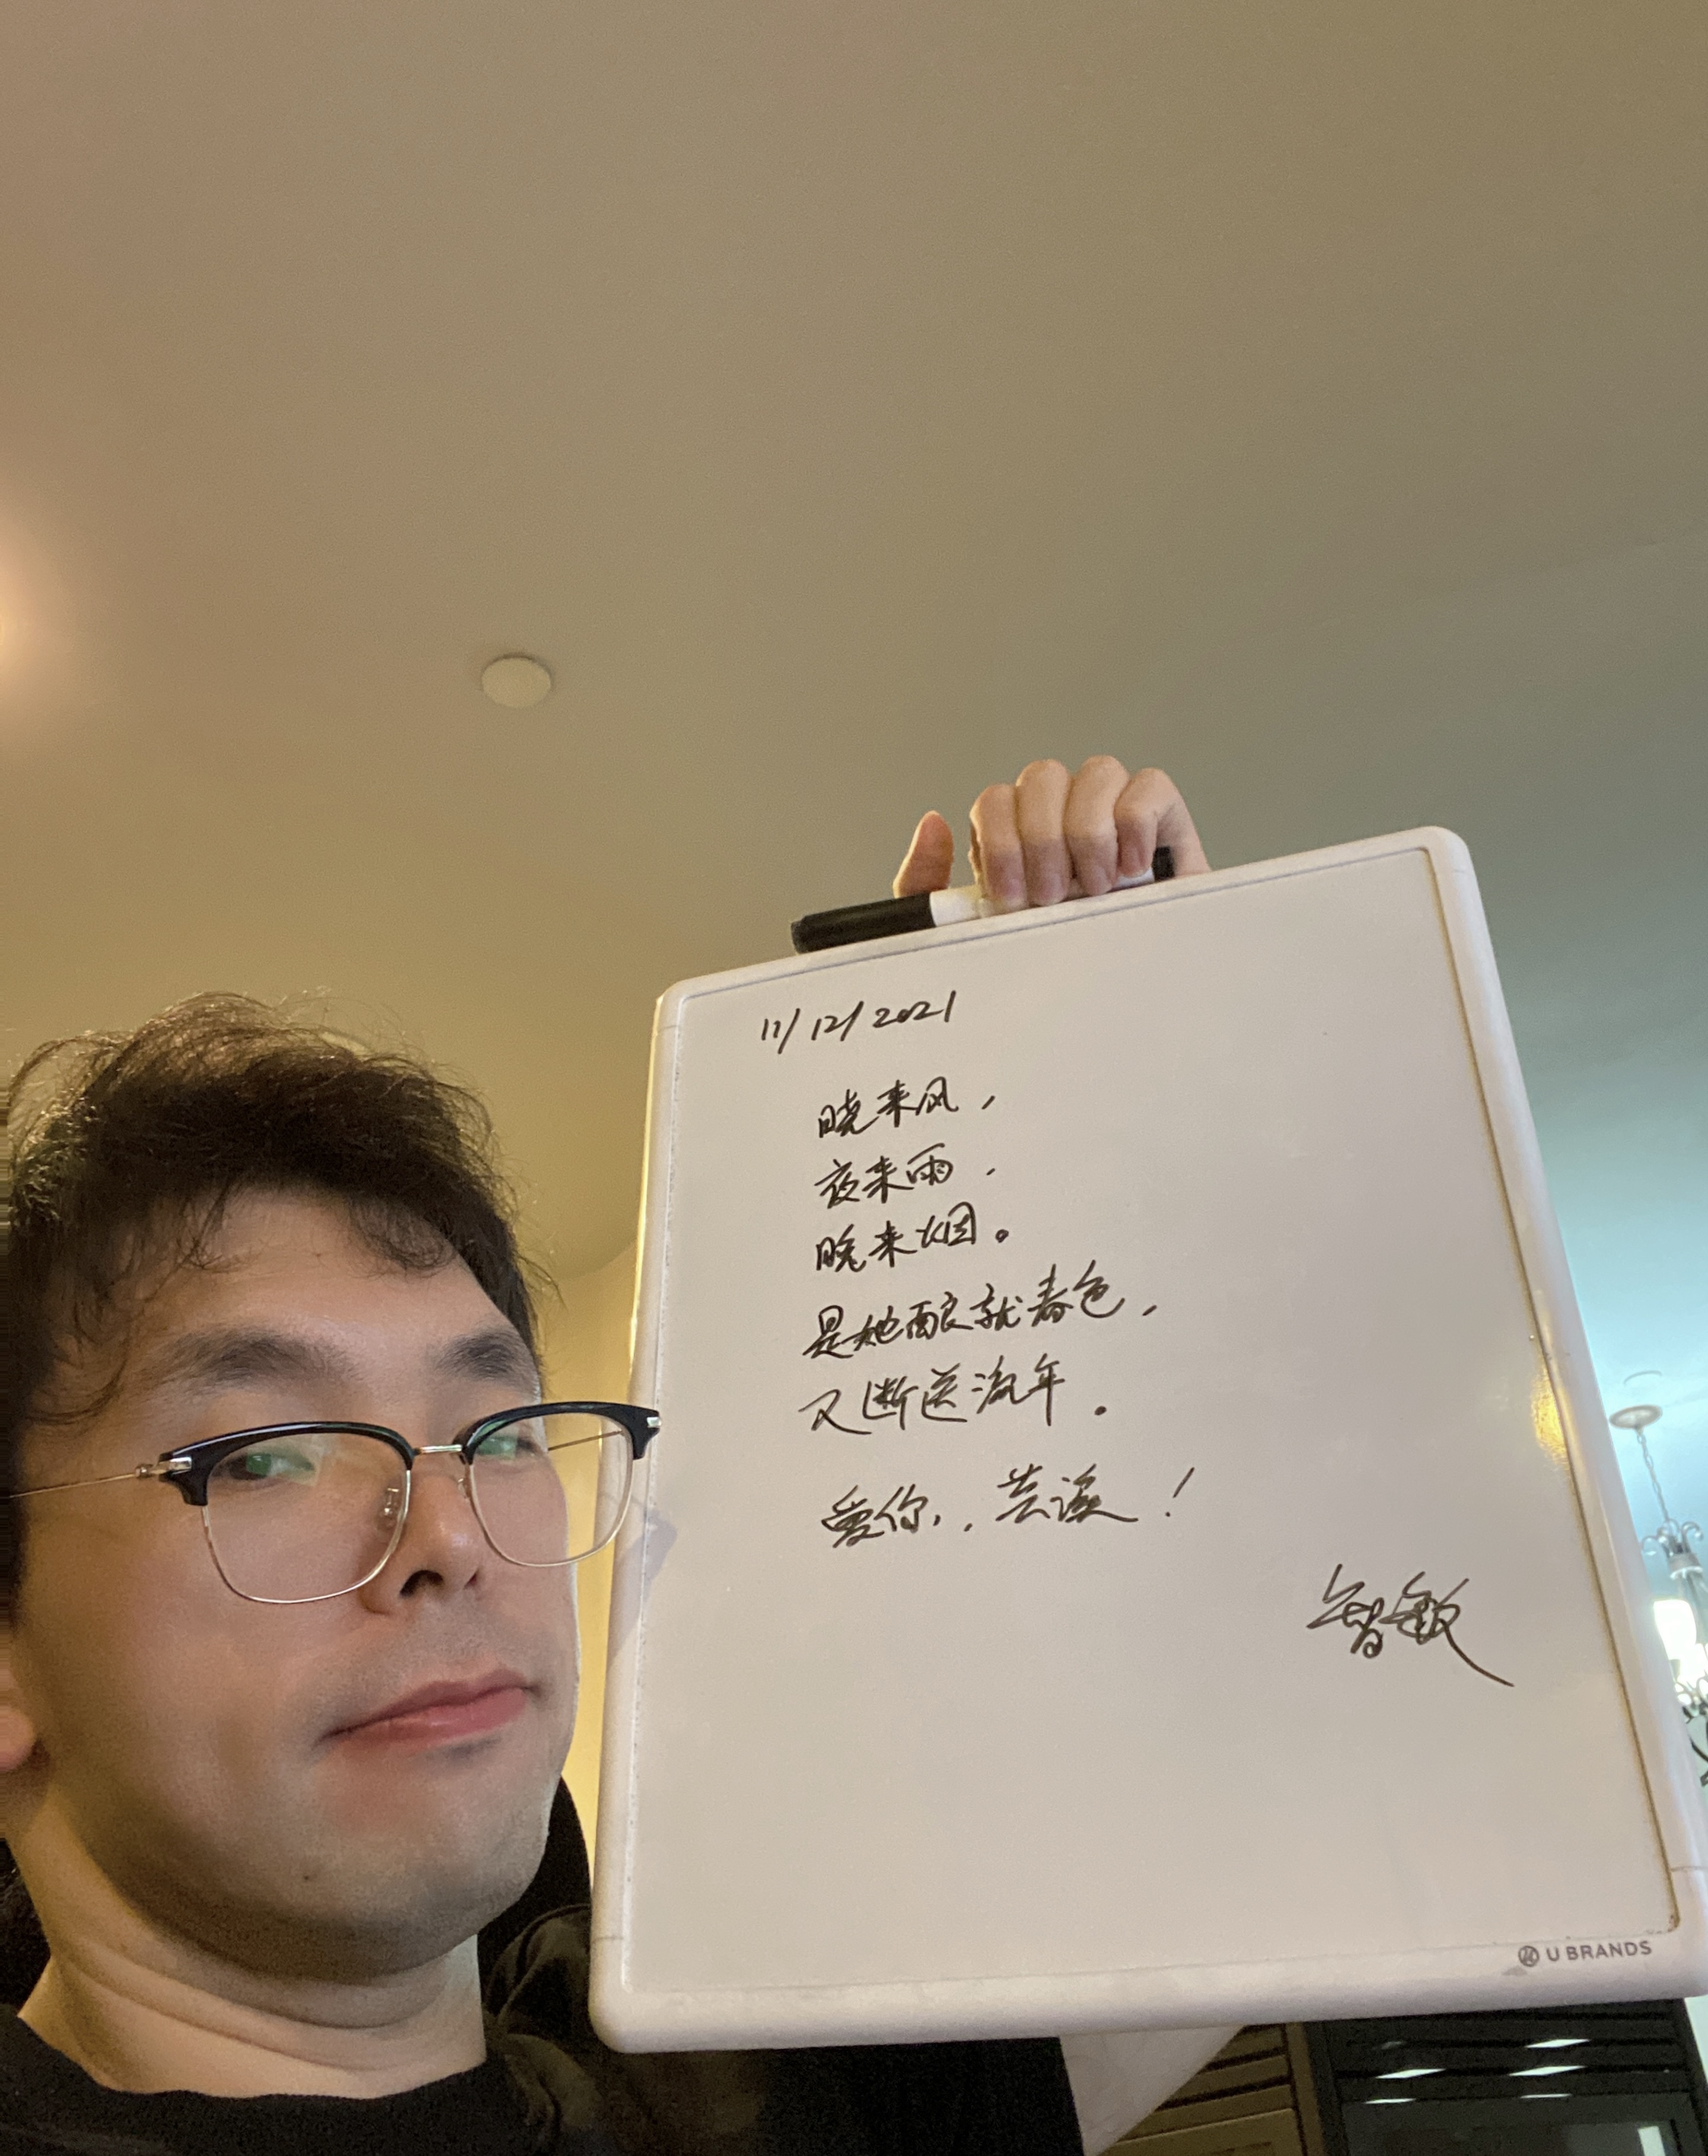 11/12/2021
晓来风，
夜来雨，
晚来烟。
是她酿就春色，
又断送流年。
爱你，芸溪！
智敏
U BRANDS